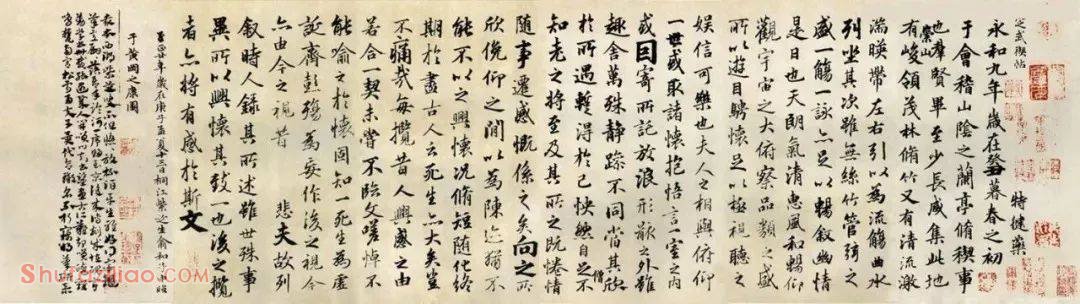 定武禊帖
特健藥
永和九年歲在癸丑暮春之初
于會稽山陰之蘭亭脩稧事
也羣賢畢至少長咸集此地
有崇山峻領茂林脩竹又有清流激
湍暎帶左右引以為流觴曲水
列坐其次雖無絲竹管弦之
盛一觴一詠亦足以暢叙幽情
是日也天朗氣清惠風和暢仰
觀宇宙之大俯察品類之盛
所以遊目騁懷足以極視聽之
娛信可樂也夫人之相與俯仰
一世或取諸懷抱悟言一室之內
或因寄所託放浪形骸之外雖
趣舍萬殊靜躁不同當其欣
於所遇暫得於己怏然自足不
僧
知老之將至及其所之既惓情
隨事遷感慨係之矣向之所
欣俛仰之閒以為陳迹猶不
能不以之興懷況脩短隨化終
期於盡古人云死生亦大矣豈
不痛哉每攬昔人興感之由
若合一契未嘗不臨文嗟悼不
能喻之於懷固知一死生為虛
誕齊彭殤為妄作後之視今
亦由今之視昔 悲夫故列
叙時人錄其所述雖世殊事
異所以興懷其致一也後之攬
者亦將有感於斯文
至正廿年歲在庚子孟夏十三日桐江紫芝生俞和臨
于黃岡之康園
Shufazidiao.com